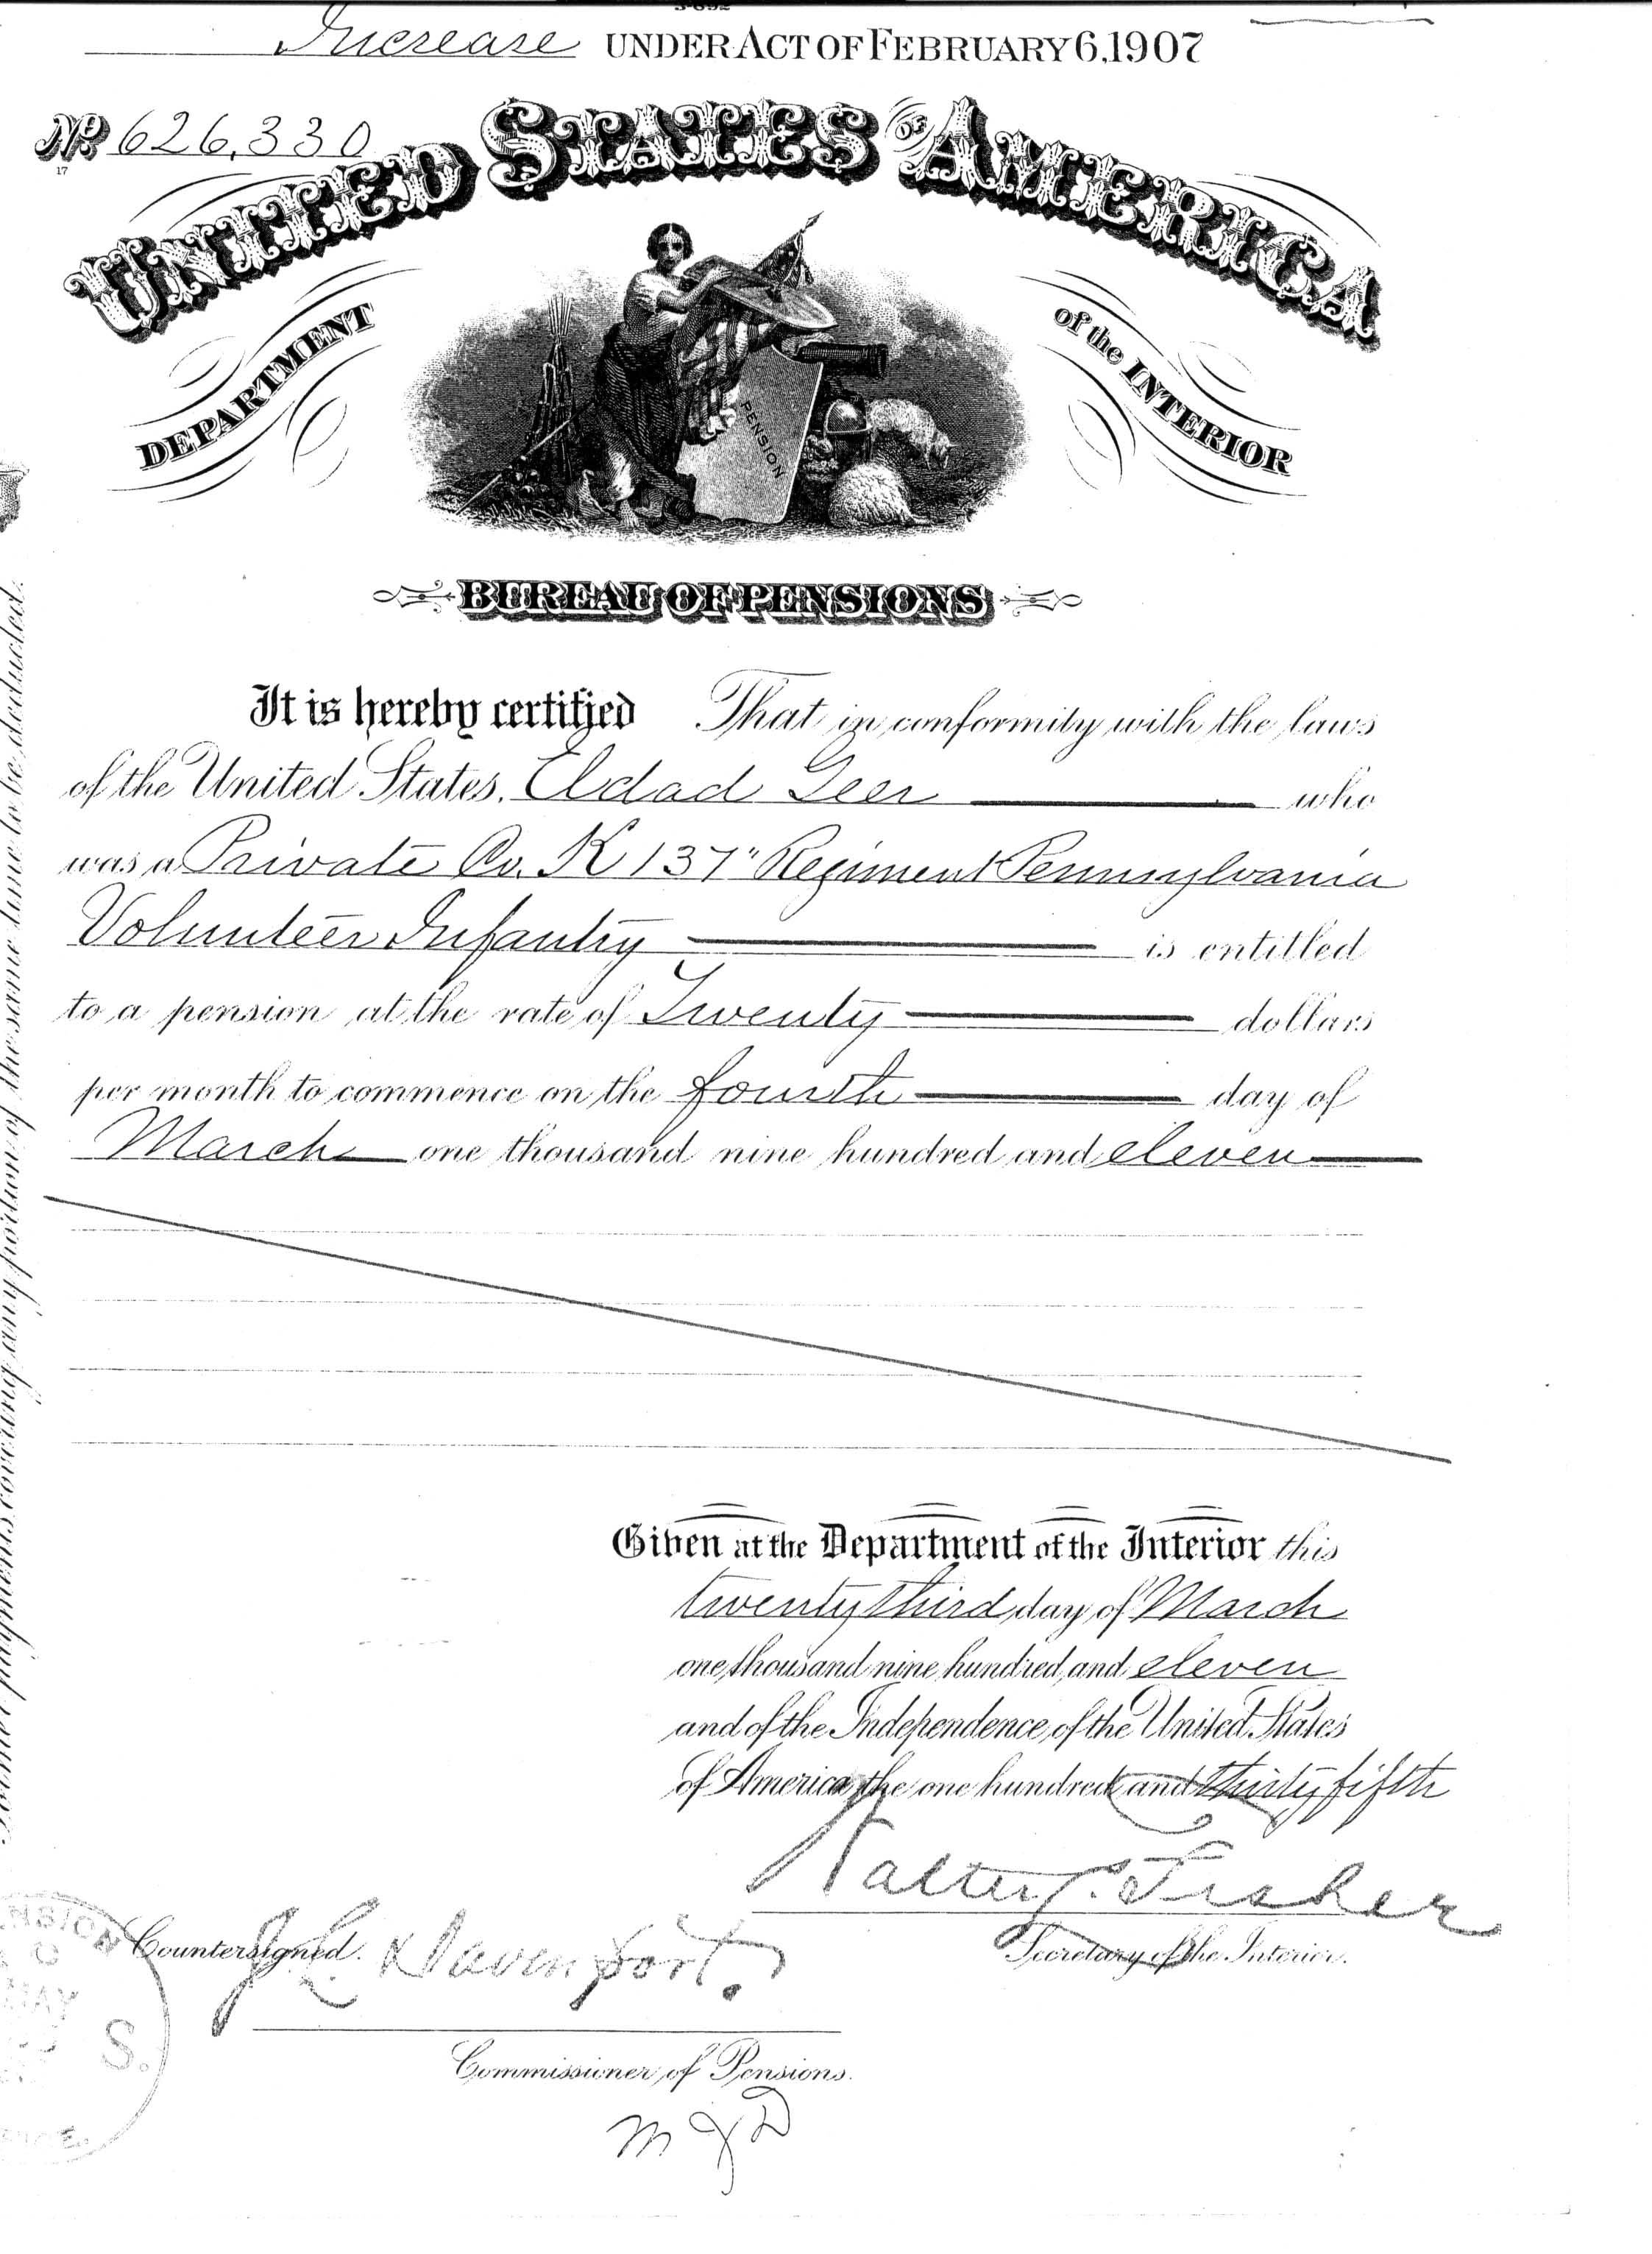 3-892
Increase UNDER ACT OF FEBRUARY 6, 1907
No. 626,330
17
UNITED STATES OF AMERICA
DEPARTMENT of the INTERIOR
PENSION
BUREAU OF PENSIONS
It is hereby certified That in conformity with the laws
of the United States, Eldad Geer who
was a Private Co. K 137" Regiment Pennsylvania
Volunteer Infantry is entitled
to a pension at the rate of Twenty dollars
per month to commence on the fourth day of
March one thousand nine hundred and eleven
Given at the Department of the Interior this
twenty third day of March
one thousand nine hundred and eleven
and of the Independence of the United States
of America the one hundred and thirty fifth
Walter L. Fisher
Secretary of the Interior.
Countersigned.
J L Davenport.
Commissioner of Pensions.
M J D
payments covering any portion of the same time to be deducted.
MAY
S.